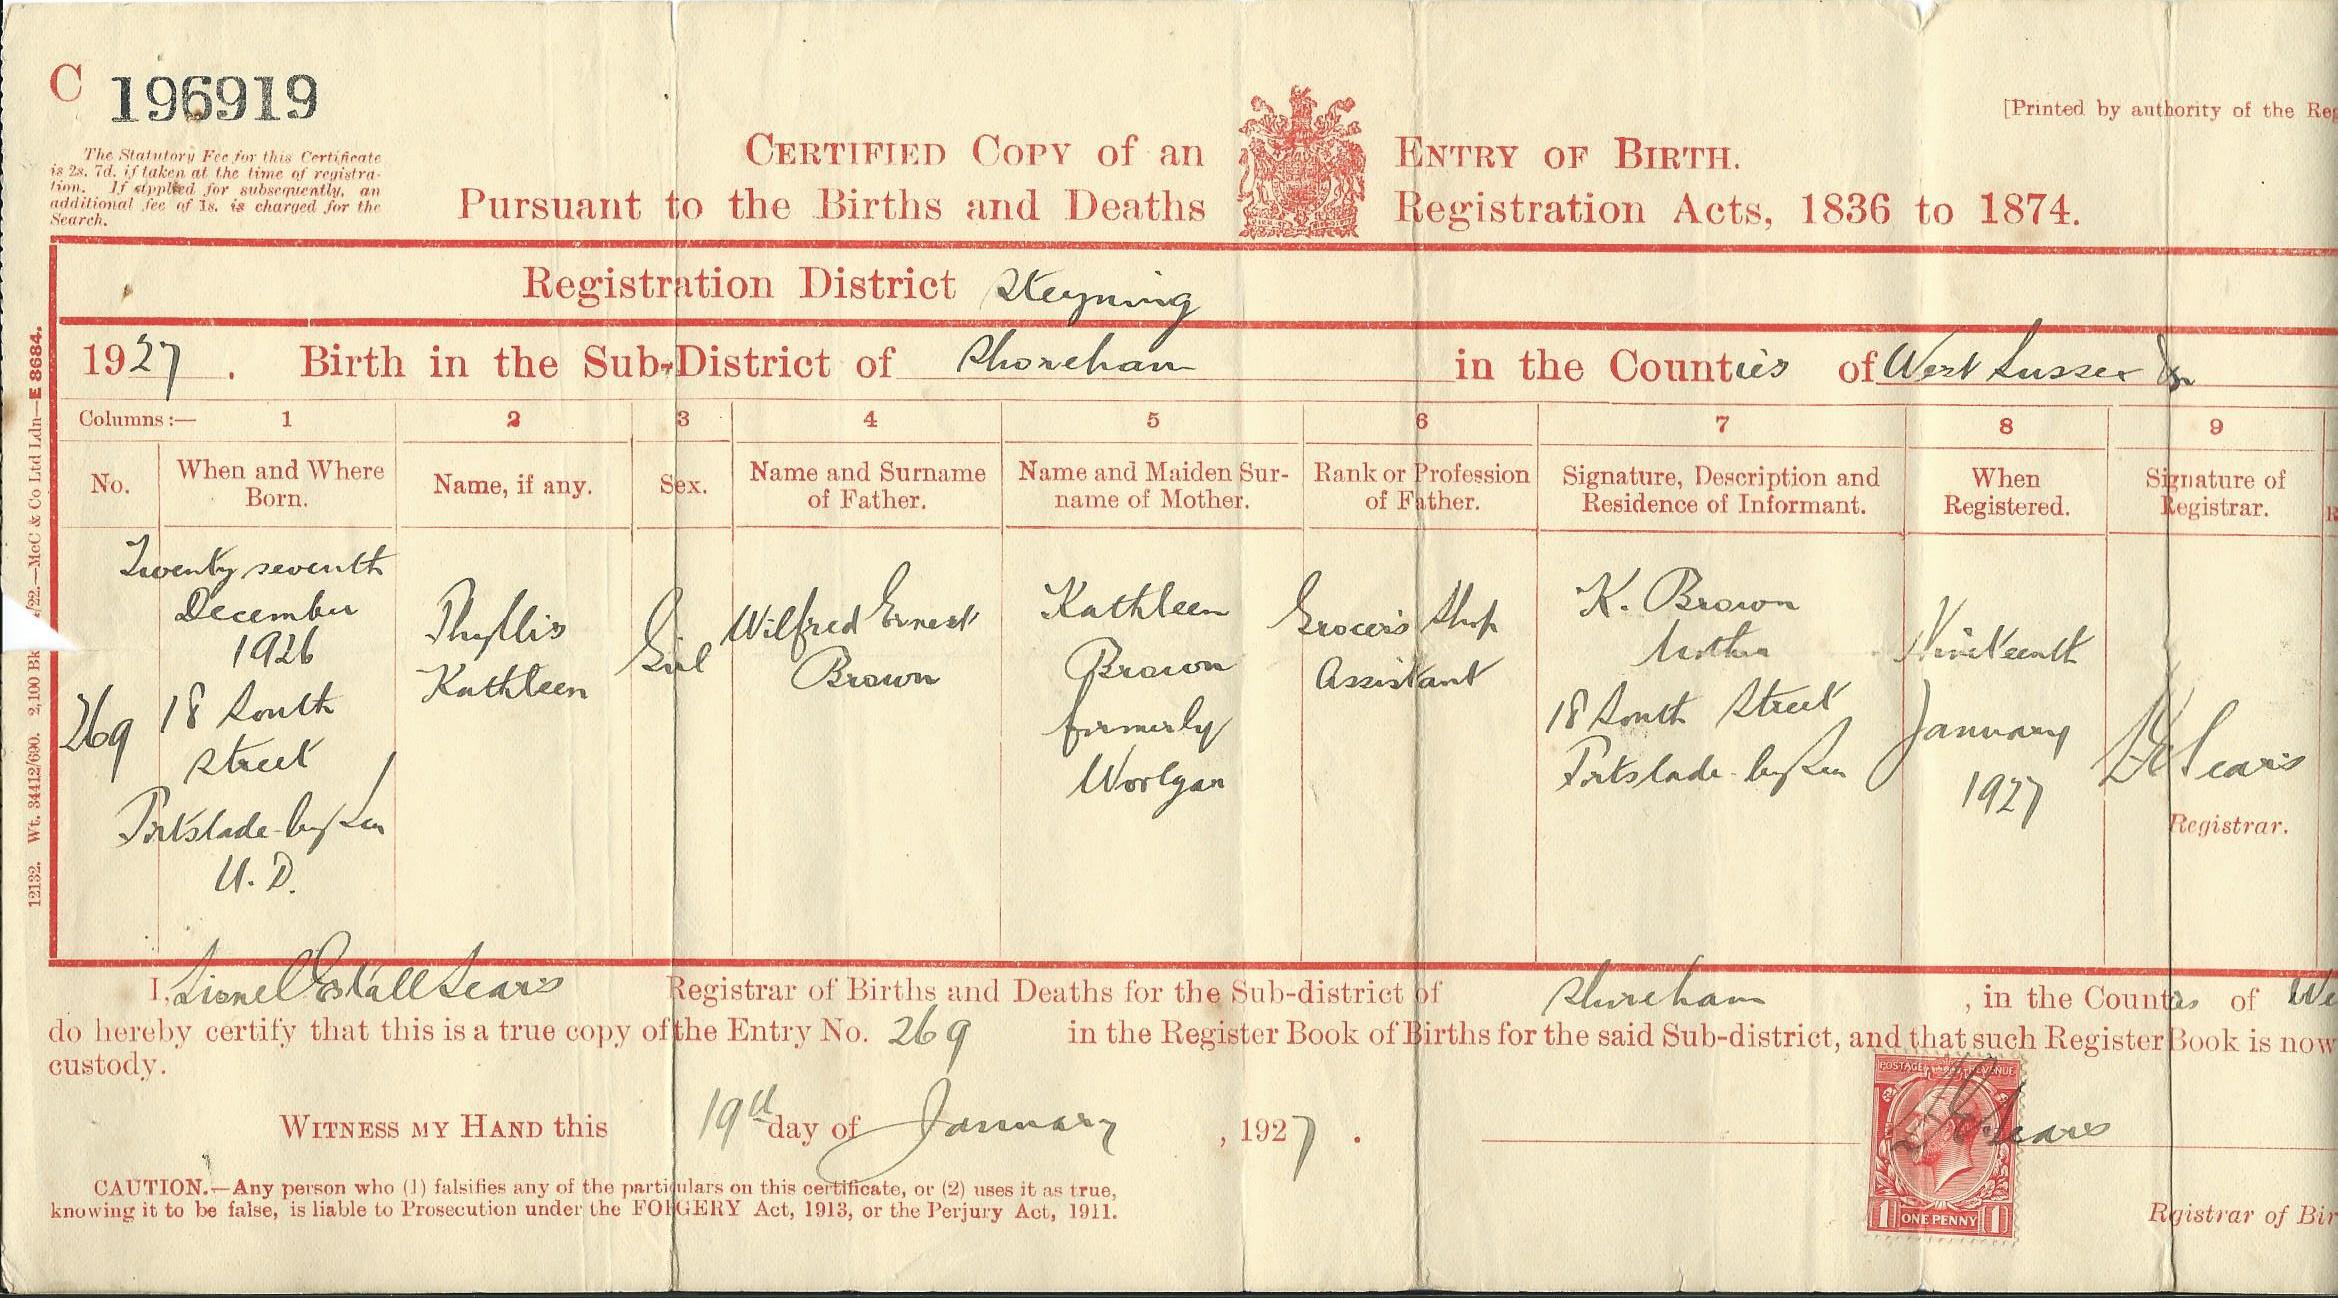 C 196919
The Statutory Fee for this Certificate
is 2s. 7d. if taken at the time of registra-
tion. If applied for subsequently, an
additional fee of 1s. is charged for the
Search.
[Printed by authority of the Reg
CERTIFIED COPY of an ENTRY OF BIRTH.
Pursuant to the Births and Deaths Registration Acts, 1836 to 1874.
Registration District Steyning
1927. Birth in the Sub-District of Shoreham in the Counties of West Sussex &c
Columns:— 1 2 3 4 5 6 7 8 9
No. When and Where Born. Name, if any. Sex. Name and Surname of Father. Name and Maiden Sur-name of Mother. Rank or Profession of Father. Signature, Description and Residence of Informant. When Registered. Signature of Registrar.
269
Twenty seventh
December
1926
18 South
Street
Portslade-by-Sea
U. D.
Phyllis
Kathleen
Girl
Wilfred Ernest
Brown
Kathleen
Brown
formerly
Woolgar
Grocer's Shop
Assistant
K. Brown
Mother
18 South Street
Portslade-by-Sea
Nineteenth
January
1927
L E Sears
Registrar.
I, Lionel Estall Sears Registrar of Births and Deaths for the Sub-district of Shoreham, in the Counties of We
do hereby certify that this is a true copy of the Entry No. 269 in the Register Book of Births for the said Sub-district, and that such Register Book is now
custody.
WITNESS MY HAND this 19th day of January, 1927.
L E Sears
POSTAGE REVENUE
1 ONE PENNY 1
CAUTION.—Any person who (1) falsifies any of the particulars on this certificate, or (2) uses it as true,
knowing it to be false, is liable to Prosecution under the FORGERY Act, 1913, or the Perjury Act, 1911.
Rgistrar of Bir
12132. Wt. 34412/690. 2,100 Bk /22.—McC & Co Ltd Ldn—E 8684.